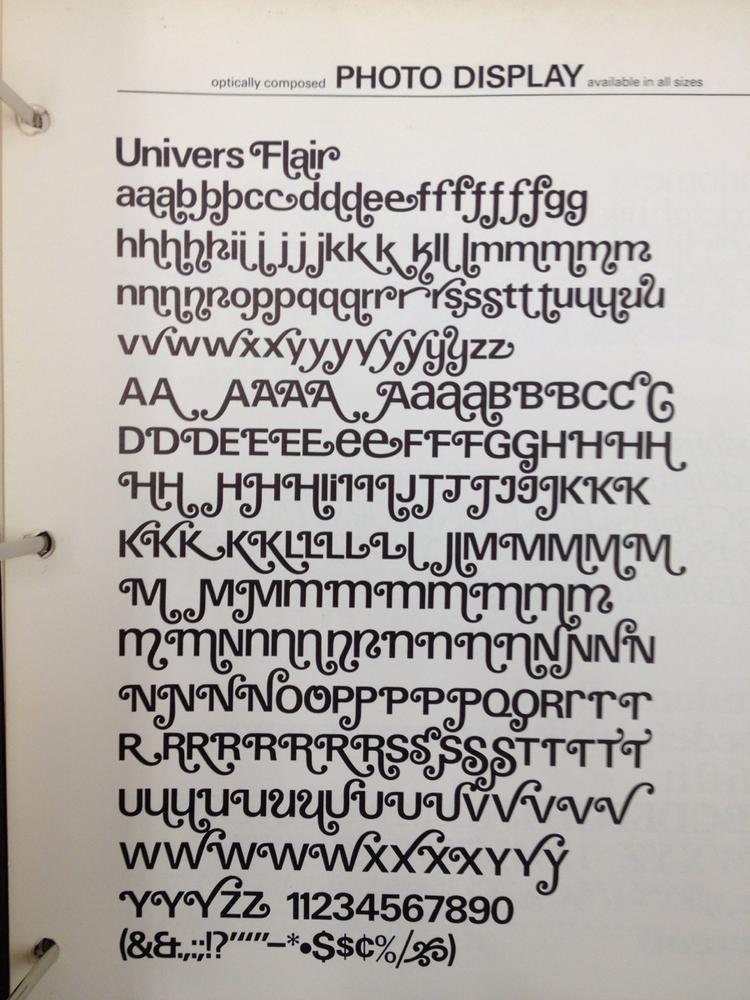 optically composed PHOTO DISPLAY available in all sizes
Univers Flair
aaabbbbccdddeeffffffffgg
hhhhhiijjjjkkkklllmmmmm
nnnnnoppqqqrrrrsssstttuuuuu
vvwwxxyyyyyyyyyzz
AAAAAAAaaaBBBCCCC
DDDEEEEeeFFFGGHHHH
HHHHHIiIIIJJJJJJJKKK
KKKKKLLLLLLJJMMMMM
MMMmmmmmmm
mmNnnnnnnnnnNNNN
NNNNNOOPPPPPQQRrrr
RRRRRRRRSSSSSTTTTT
uuuuuuuuUUUUVVVVVV
WWWWWWXXXXYYY
YYYZZ 11234567890
(&&.,:;!?""""–*•$$¢%/&)